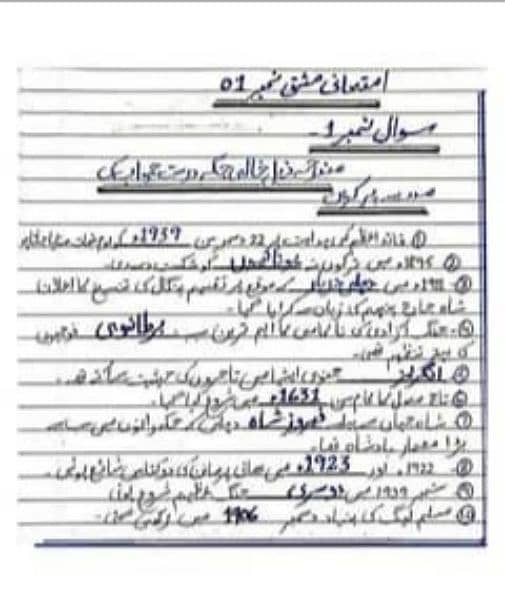 امتحانی مشق نمبر 01
سوال نمبر 1-
مندرجہ ذیل خالی جگہ درست جواب کی
مدد سے پر کریں
① قائد اعظم کی ہدایت پر 22 دسمبر 1939ء کو یوم نجات منایا گیا
② میں ترکوں نے کو شکست دی
③ 1911ء میں دہلی دربار کے موقع پر تقسیم بنگال کی تنسیخ کا اعلان
شاہ جارج پنجم کی زبان سے کرایا گیا۔
④ جنگ آزادی کی ناکامی کا اہم ترین سبب برطانوی فوجیوں
کا بہتر تنظیم تھی۔
⑤ انگریز جنوبی ایشیا میں تاجروں کی حیثیت سے آئے تھے۔
⑥ تاج محل کا کام سن 1631ء میں شروع کیا گیا۔
⑦ شاہ جہاں سے پہلے فیروز شاہ دہلی کے حکمرانوں میں سب سے
بڑا معمار بادشاہ تھا۔
⑧ 1922ء اور 1923ء میں بھائی پرمانند کی دو کتابیں شائع ہوئی۔
⑨ ستمبر 1939 میں دوسری جنگ عظیم شروع ہوئی
⑩ مسلم لیگ کی بنیاد دسمبر 1906 میں رکھی گئی۔